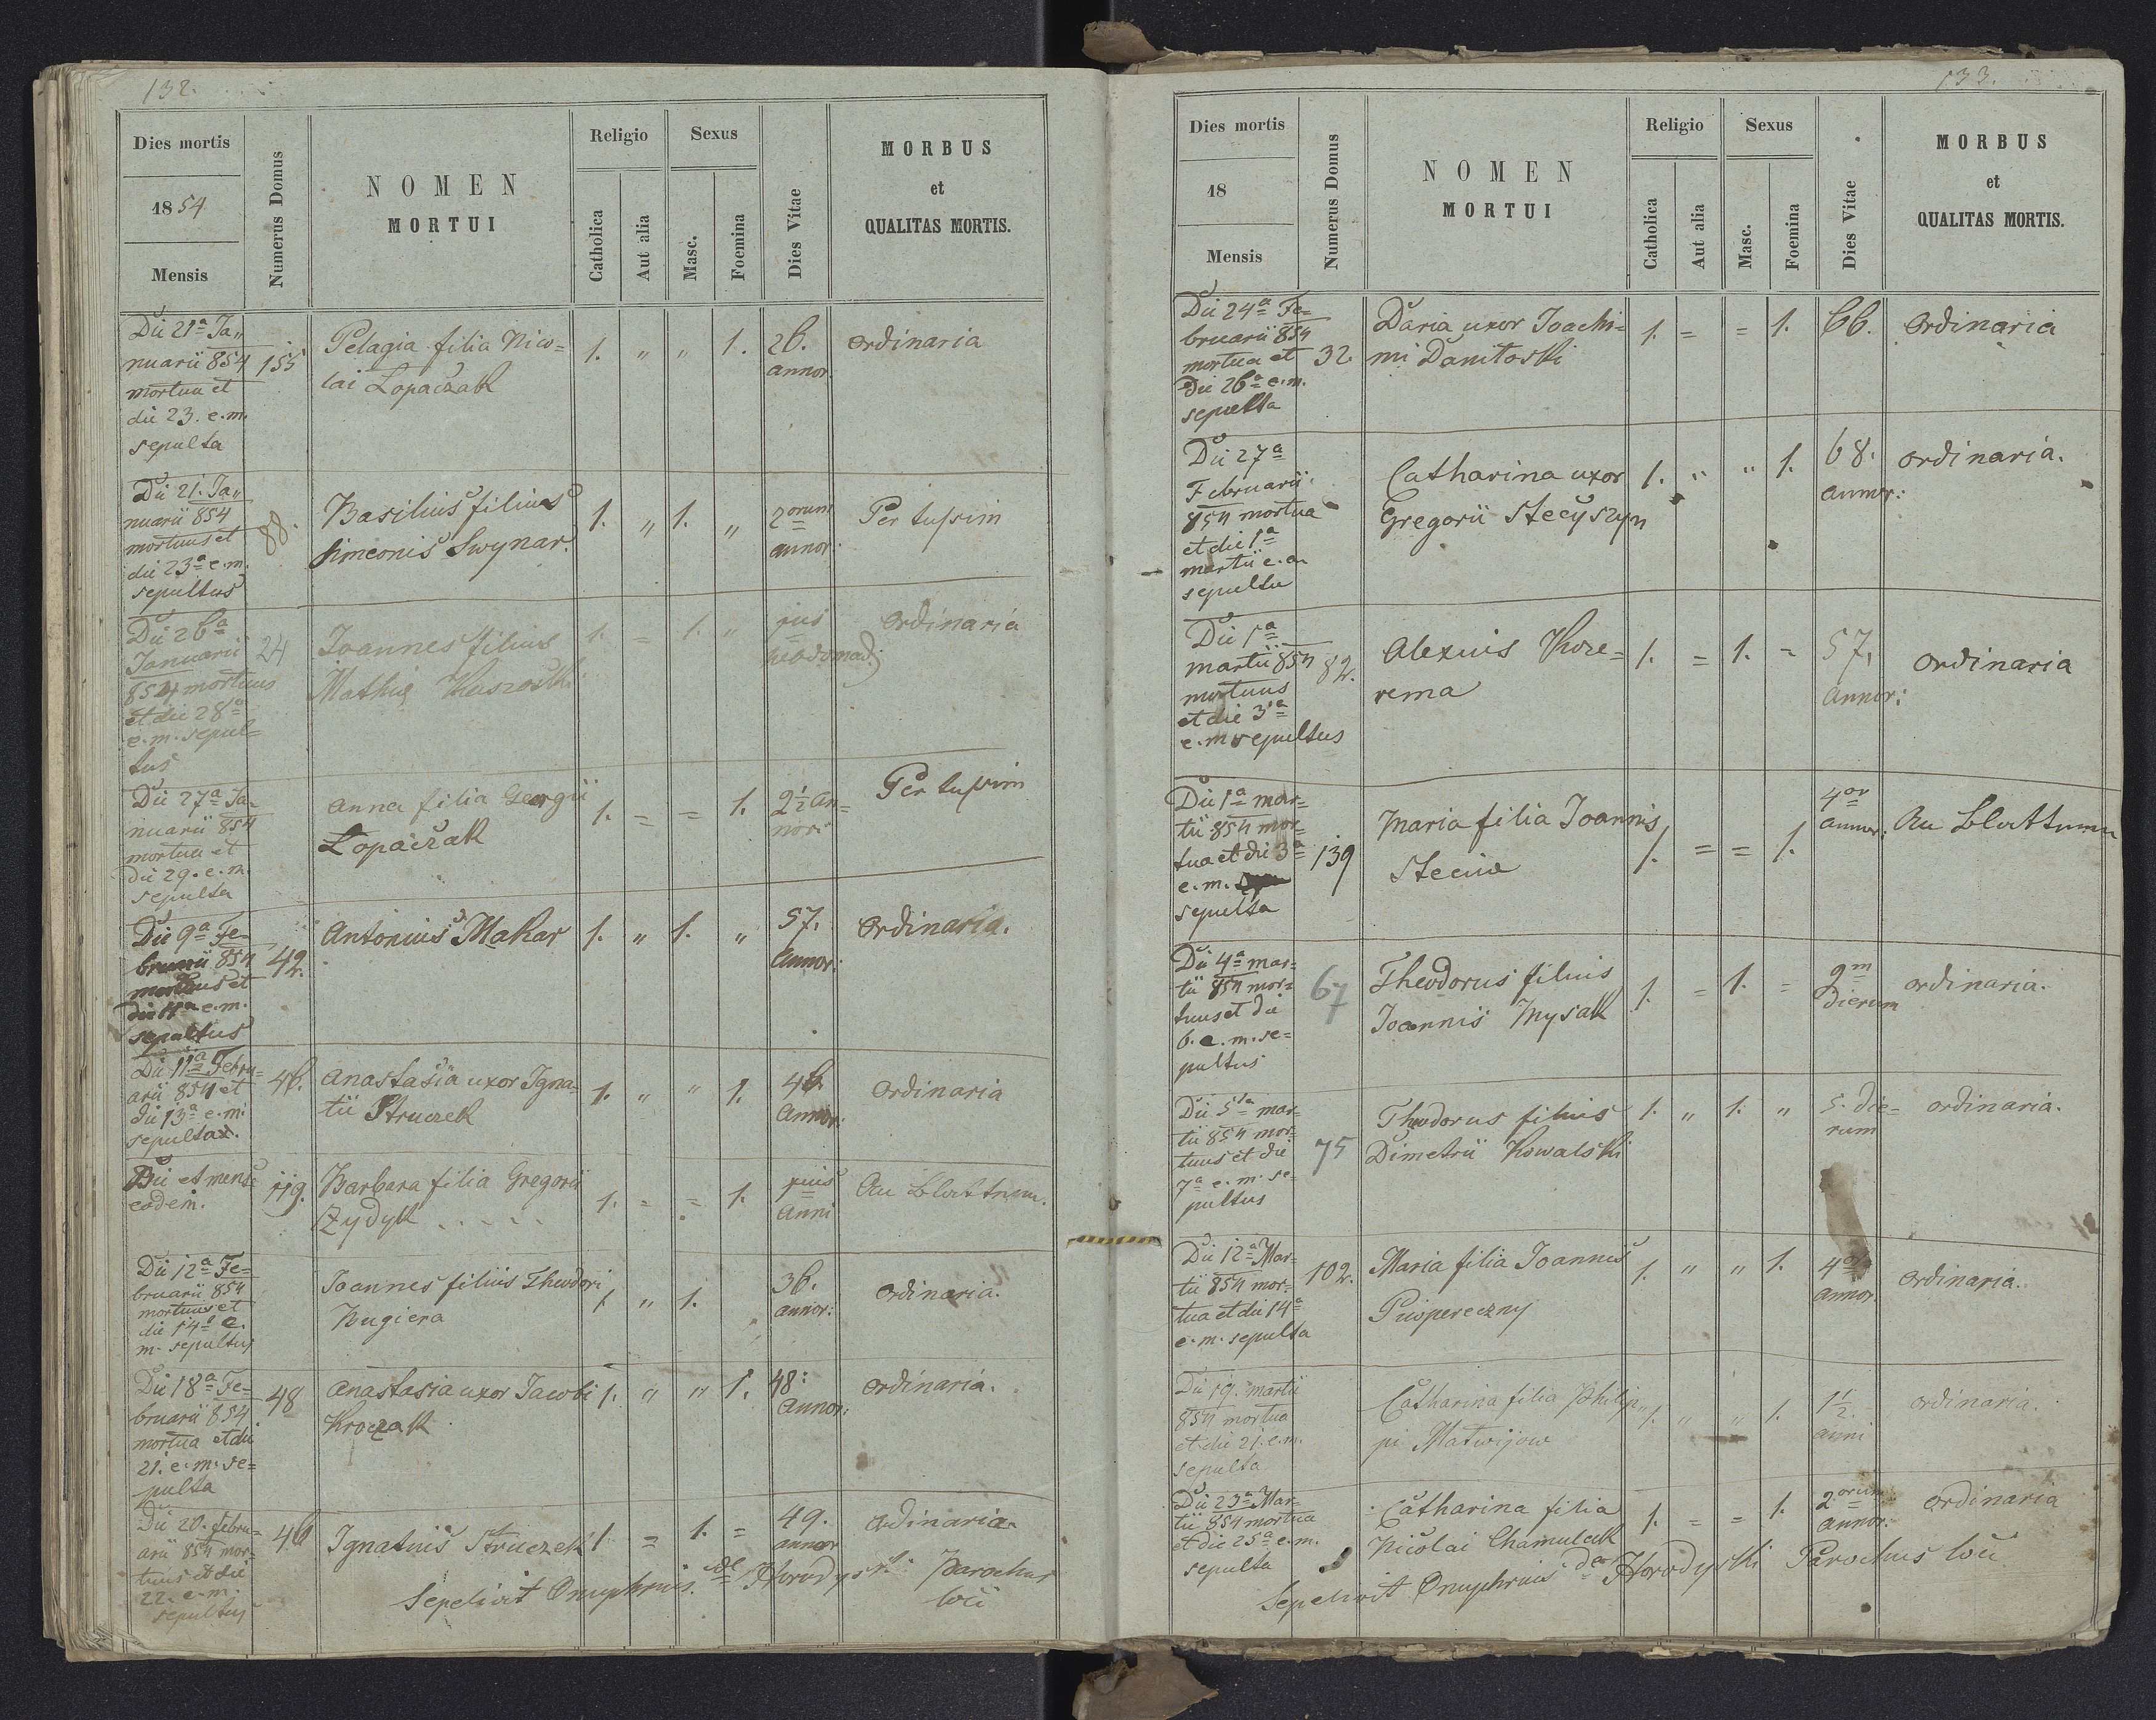 132.
Dies mortis
1854
Mensis
Numerus Domus
NOMEN
MORTUI
Religio
Catholica
Aut alia
Sexus
Masc.
Foemina
Dies Vitae
MORBUS
et
QUALITAS MORTIS.
Die 21ª Ja„
nuarii 854
mortua et
die 23. e.m.
sepulta
155
Pelagia filia Nico=
lai Lopaczak
1. „ „ 1.
26.
annor.
ordinaria
Die 21. Ja„
nuarii 854
mortuus et
die 23ª e.m.
sepultus
88.
Basilius filius
Simeonis Swynar.
1. „ 1. „
2orum
annor:
Per tussim
Die 26ª
Januarii
854 mortuus
et die 28ª
e.m. sepul=
tus
24
Joannes filius
Mathie
1. = 1. „
jus
hebdomad:
ordinaria
Die 27ª Ja=
nuarii 854
mortua et
die 29. e.m.
sepulta
Anna filia Georgii
Lopaczak
1. = = 1.
2½ an=
nor:
Per tussim
Die 9ª Fe=
bruarii 854
mortuus et
die 11ª e.m.
sepultus
42.
Antonius Makar
1. „ 1. „
57.
Annor:
ordinaria.
Die 11ª Febru=
arii 854 et
die 13ª e.m.
sepulta.
46.
Anastasia uxor Igna=
tii Struczek
1. „ „ 1.
46.
Annor:
ordinaria
Die et mense
eodem.
119.
Barbara filia Gregorii
Zydyk . . . . .
1. = = 1.
jus
Anni
Au Blattnum.
Die 12ª Fe=
bruarii 854
mortuus et
die 14ª e.
m. sepultus
Joannes filius Theodori
Kugiera
1. „ 1.
36.
annor:
ordinaria.
Die 18ª Fe=
bruarii 854
mortua et die
21. e.m. se=
pulta
48
Anastasia uxor Jacobi
Kroczak
1. „ „ 1.
48:
Annor:
ordinaria.
Die 20. febru=
arii 854 mor=
tuus et die
22. e.m.
sepultus
46
Ignatius Struczek
1. = 1. =
49.
annor
ordinaria.
Sepelivit Onuphrius de Horodyski Parochus
loci
133.
Dies mortis
18
Mensis
Numerus Domus
NOMEN
MORTUI
Religio
Catholica
Aut alia
Sexus
Masc.
Foemina
Dies Vitae
MORBUS
et
QUALITAS MORTIS.
Die 24ª Fe=
bruarii 854
mortua et
Die 26ª e.m.
sepulta
32.
Daria uxor Joachi=
mi
1. = = 1.
66.
ordinaria
Die 27ª
Februarii
854 mortua
et die 1ª
martii e.a.
sepulta
Catharina uxor
Gregorii Stecyszyn
1. „ „ 1.
68.
annor:
ordinaria.
Die 1ª
martii 854
mortuus
et die 3ª
e.m. sepultus
82.
Alexius Kore=
rema
1. = 1. =
57.
Annor:
ordinaria
Die 1ª mar=
tii 854 mor=
tua et die 3ª
e.m.
sepulta
139
Maria filia Joannis
Steciw
1. = = 1.
4or
annor:
Au Blattnum
Die 4ª mar=
tii 854 mor=
tuus et die
6. e.m. se=
pultus
67
Theodorus filius
Joannis Mysak
1. = 1. =
9m
dierum
ordinaria.
Die 5ta mar=
tii 854 mor=
tuus et die
7ª e.m. se=
pultus
75
Theodorus filius
Dimetrii Kowalski
1. „ 1. „
5. die=
rum
ordinaria.
Die 12ª Mar=
tii 854 mor=
tua et die 14ª
e.m. sepulta
102.
Maria filia Joannis
Puopereczny
1. „ „ 1.
4or
annor.
ordinaria.
Die 19. martii
854 mortua
et die 21. e.m.
sepulta
Catharina filia Philip„
pi Matwijow
1. „ „ 1.
1½.
anni
ordinaria.
Die 23ª Mar=
tii 854 mortua
et die 25ª e.m.
sepulta
Catharina filia
Nicolai Chamulak
1. = = 1.
2orum
annor:
ordinaria
Sepelivit Onuphrius de Horodyski Parochus loci